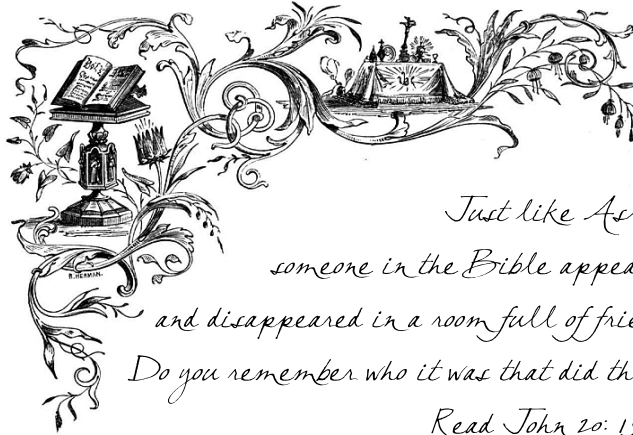 R. HERMAN.
Just like As
someone in the Bible appea
and disappeared in a room full of frie
Do you remember who it was that did th
Read John 20: 1